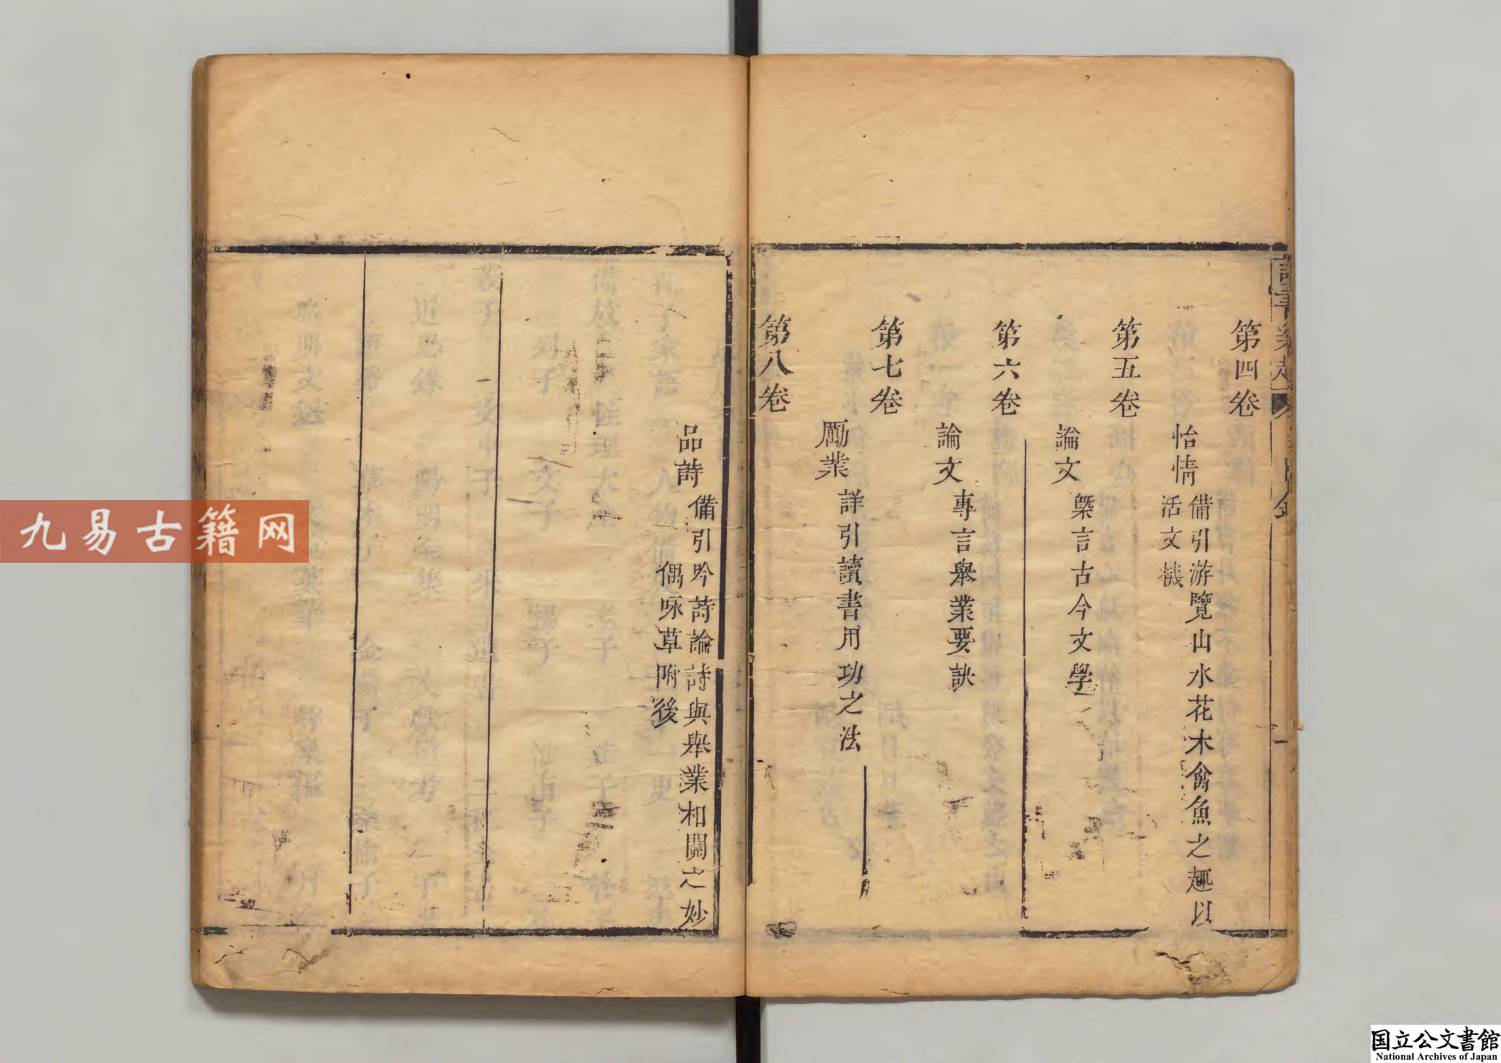 第四卷
怡情
備引游覽山水花木禽魚之趣以
活文機
第五卷
論文
槩言古今文學
第六卷
論文
專言舉業要訣
第七卷
勵業
詳引讀書用功之法
第八卷
品詩
備引吟詩論詩與舉業相關之妙
偶咏草附後
九易古籍网
国立公文書館
National Archives of Japan